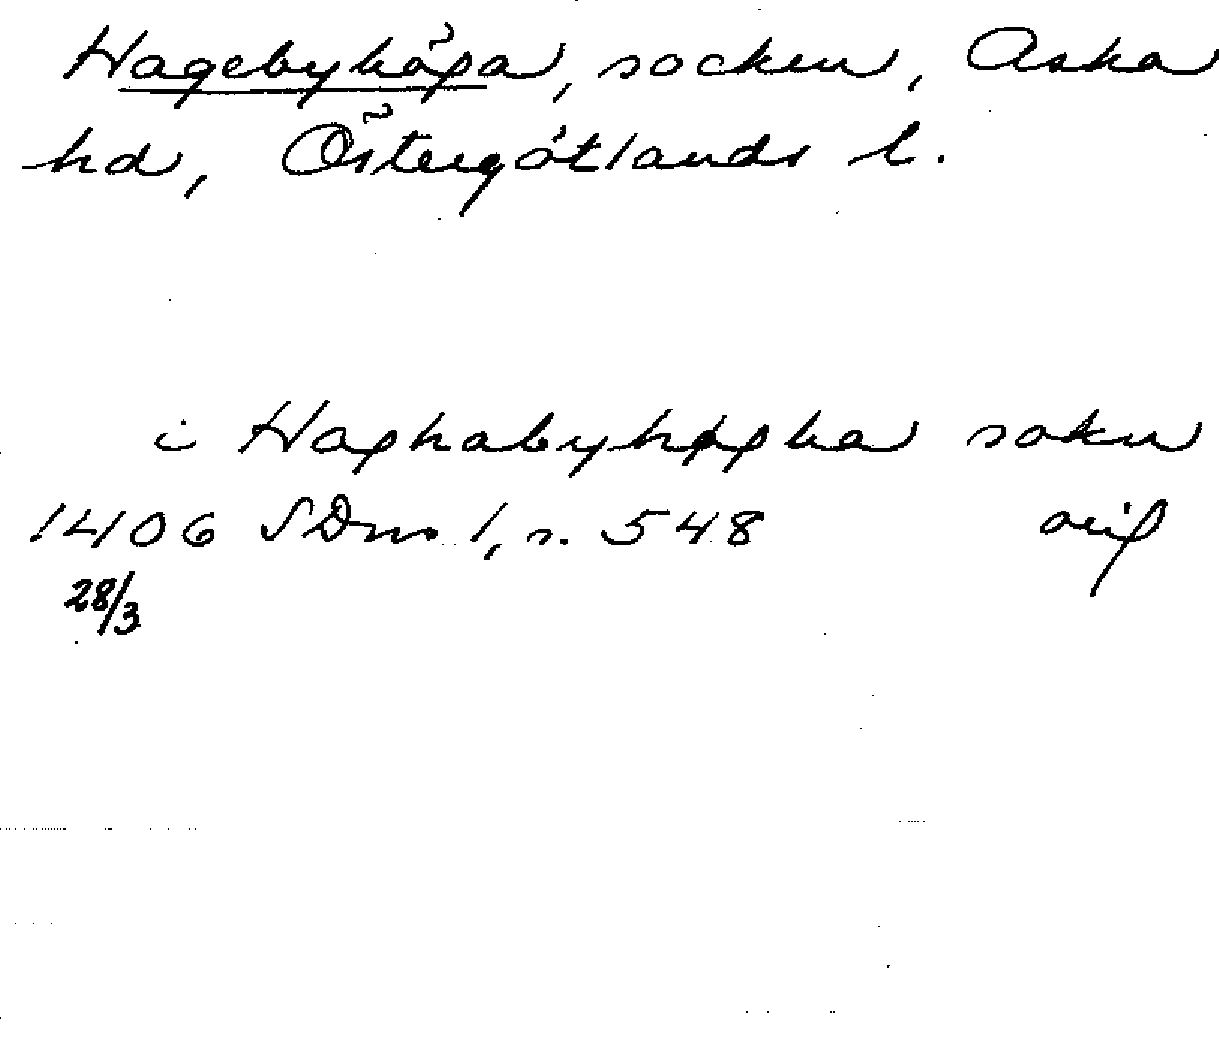 Hagebyhöga, socken, Aska
hd, Östergötlands l.
i Haghabyhøgha sokn
1406 SDns 1, s. 548 orig
28/3